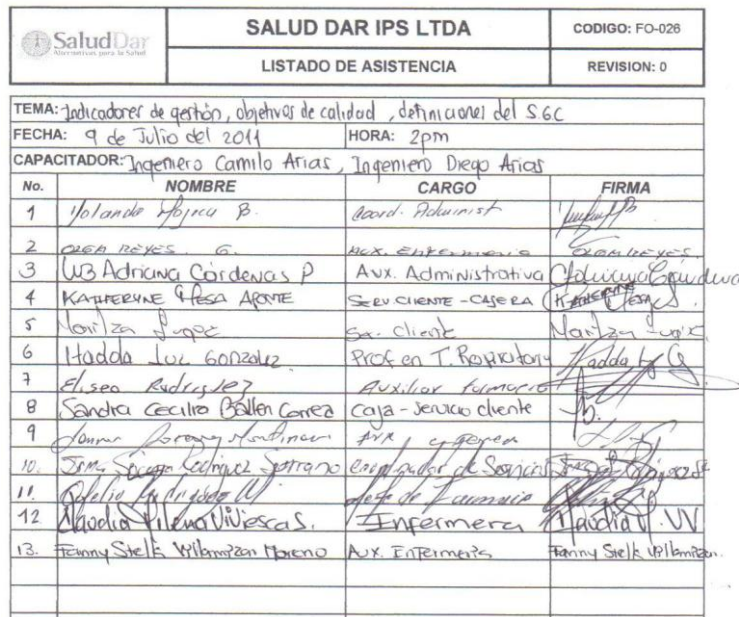 SaludDar
Alternativas para la Salud
SALUD DAR IPS LTDA
CODIGO: FO-026
LISTADO DE ASISTENCIA
REVISION: 0
TEMA: Indicadores de gestión, objetivos de calidad, definiciones del S.G.C
FECHA: 9 de Julio del 2011 HORA: 2pm
CAPACITADOR: Ingeniero Camilo Arias, Ingeniero Diego Arias
No. NOMBRE CARGO FIRMA
1 Yolanda Mojica B. Coord. Administ
2 OLGA REYES. G. AUX. Enfermeria OLGA REYES.
3 Adriana Cárdenas P Aux. Administrativa
4 KATHERYNE MESA APONTE SERV. CLIENTE - CAJERA
5 Maritza Cliente Maritza
6 Hadda Luz Gonzalez Prof en T. Respiratory Hadda
7 Eliseo Rodriguez Auxiliar farmacia
8 Sandra Cecilia Ballen Correa Caja - servicio cliente
9
10. Irma Socorro Rodriguez Coordinador de Servicios
11. Jefe de Farmacia
12 Claudia Milena Viviescas. Enfermera Claudia M. VV
13. Fanny Stella Villamizar Moreno Aux. Enfermeria Fanny Stella Villamizar.